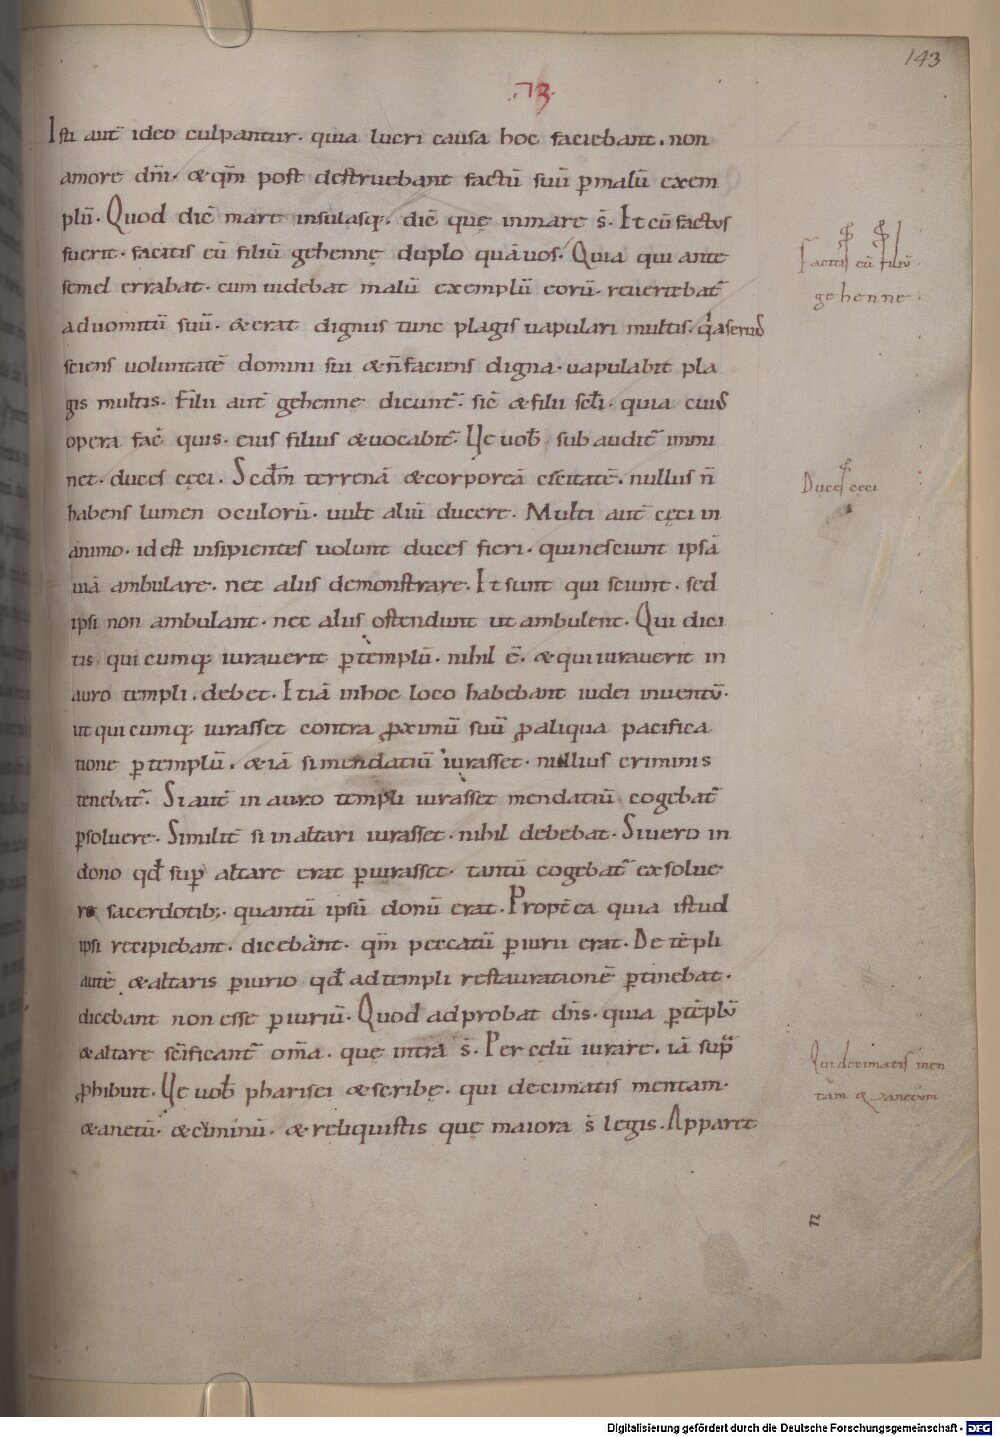 143
.73.
Isti aut̄ ideo culpantur. quia lucri causa hoc faciebant. non
amore dn̄i. & qm̄ post destruebant factū suū p̱ malū exem
plū. Quod dic̄ mare insulasq;. dic̄ quę in mare s̄. Et cū factus
fuerit. facitis eū filiū gehennę duplo quā uos. Quia qui ante
semel errabat. cum uidebat malū exemplū eorū. reuertebat̄
ad uomitū suū. & erat dignus tunc plagis uapulari multis. q̄a seruus
sciens uoluntatē domini sui & n̄ faciens digna. uapulabit pla
gis multis. Filii aut̄ gehennę dicunt̄. sic̄ & filii sc̄li. quia cuius
opera fac̄ quis. eius filius & uocabit̄. Ve uob̄ sub audit̄ immi
net. duces cęci. Scdm̄ terrenā & corporeā cęcitatē. nullus n̄
habens lumen oculorū. uult aliū ducere. Multi aut̄ cęci in
animo. id est insipientes uolunt duces fieri. qui nesciunt ipsā
uiā ambulare. nec aliis demonstrare. Et sunt qui sciunt. sed
ipsi non ambulant. nec aliis ostendunt ut ambulent. Qui dici
tis quicumq; iurauerit p̱ templū. nihil ē. & qui iurauerit in
auro templi. debet. Etiā in hoc loco habebant iudei inuentū.
ut quicumq; iurasset contra ꝓximū suū ꝓ aliqua pacifica
tione p̱ templū. & iā si mendatiū iurasset. nullius criminis
tenebat̄. Si aut̄ in auro templi iurasset mendatiū cogebat̄
p̱soluere. Similit̄ si in altari iurasset. nihil debebat. Si uero in
dono qd̄ sup̱ altare erat p̱iurasset. tantū cogebat̄ exsolue
re sacerdotib;. quantū ipsū donū erat. Propt̄ea quia istud
ipsi recipiebant. dicebant. qm̄ peccatū p̱iurii erat. De tēpli
autē & altaris p̱iurio qd̄ ad templi restaurationē p̱tinebat.
dicebant non esse p̱iuriū. Quod adprobat dn̄s. quia p̱ tēplū
& altare sc̄ificant̄ om̄a. quę intra s̄. Per cęlū iurare. iā sup̱
ꝓhibuit. Ve uob̄ pharisei & scribę. qui decimatis mentam.
& anetū. & ciminū. & reliquistis quę maiora s̄ legis. Apparet
Facitis eū filiū
gehenne.
Duces ceci
Qui decimatis men
tam & anetum
n
Digitalisierung gefördert durch die Deutsche Forschungsgemeinschaft - DFG